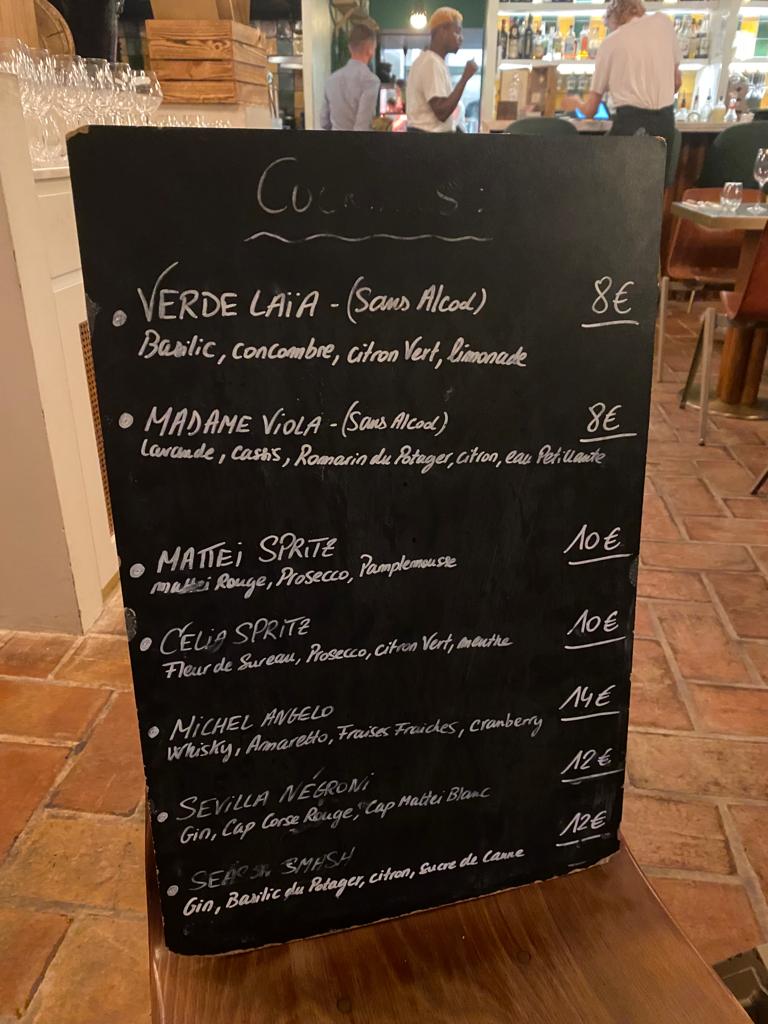 VERDE LAÏA - (Sans Alcool) 8€
Basilic, concombre, citron Vert, limonade
MADAME VIOLA - (Sans Alcool) 8€
Lavande, cassis, Romarin du Potager, citron, eau Petillante
MATTEI SPRITZ 10€
mattei Rouge, Prosecco, Pamplemousse
CÉLIA SPRITZ 10€
Fleur de Sureau, Prosecco, citron Vert, menthe
MICHEL ANGELO 14€
Whisky, Amaretto, Fraises Fraiches, cranberry
SEVILLA NÉGRONI 12€
Gin, Cap Corse Rouge, Cap Mattei Blanc
SMASH 12€
Gin, Basilic du Potager, citron, sucre de canne